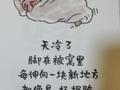 天冷了
脚在被窝里
每伸向一块新地方
都像是